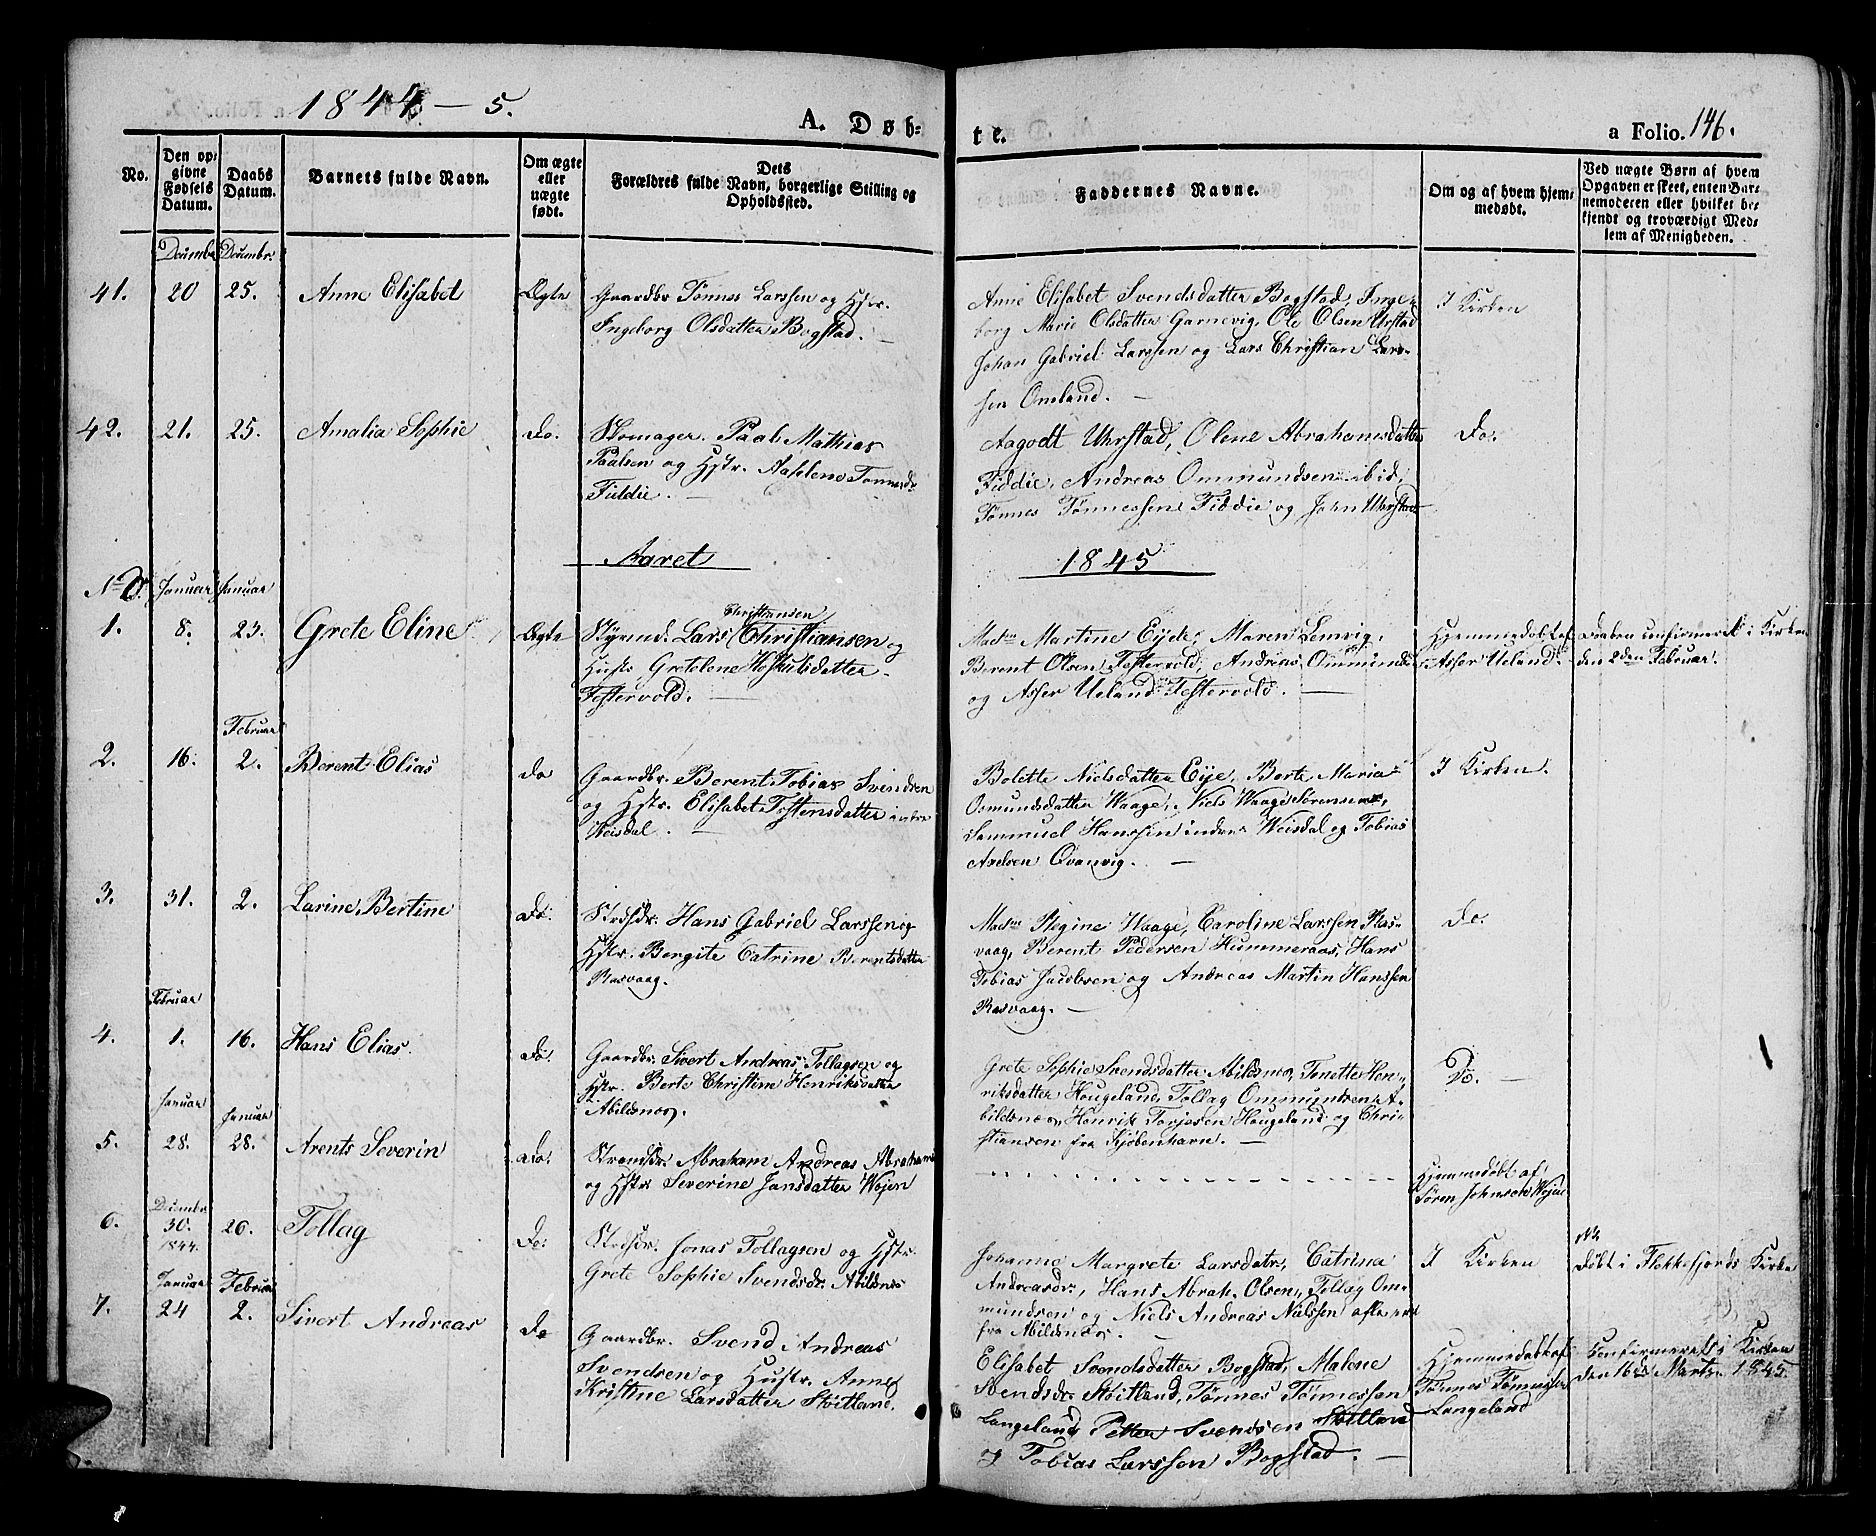 1844 - 5.
A. Døb-
te.
a Folio. 146.
No.
Den op-
givne
Fødsels
Datum.
Daabs
Datum.
Barnets fulde Navn.
Om ægte
eller
uægte
født.
Dets
Forældres fulde Navn, borgerlige Stilling og
Opholdssted.
Faddernes Navne.
Om og af hvem hjem-
medøbt.
Ved uægte Børn af hvem
Opgaven er skeet, enten Bar-
nemoderen eller hvilket be-
kjendt og troværdigt Med-
lem af Menigheden.
41.
20
25.
Anne Elisabet
Ægte
Gaardbr. Tønnes Larssen og Hstr.
Ingeborg Olsdatter Bogstad.
Anne Elisabet Svendsdatter Bogstad, Inge-
borg Marie Olsdatter Garnevig, Ole Olsen Urstad
Johan Gabriel Larssen og Lars Christian Lars-
sen Omland.
I Kirken
42.
21.
25.
Amalia Sophie
do.
Skomager. Paal Mathias
Paalsen og Hstr. Tønnesdr.
Fiddie.
Aagodt Uhrstad, Olene Abrahamsdatter
Fiddie, Andreas Ommundsen ibid,
Tønnes Tønnessen Fiddie og John Uhrstad
do.
Aaret
1845
No.
Januar
Januar
1.
8.
23.
Grete Eline
Ægte
Christiansen
Styrmd. Lars Christiansen og
Hustr. Gretelene Hoskulsdatter
Festervold.
Madm Martine Eyde, Maren Lenvig,
Berent Olsen Festervold, Andreas Ommunds
og Asser Ueland Festervold.
Hjemmedøbt af
Asser Ueland.
Daaben confirmeret i Kirken
den 2den Februar.
Februar
2.
16.
2.
Berent Elias
do
Gaardbr. Berent Tobias Svendsen
og Hstr. Elisabet Tostensdatter indre
Weisdal.
Bolette Nielsdatter Eye, Berte Maria
Osmundsdatter Waage, Niels Waage Sørensen,
Sammuel Hanssen indre Weisdal og Tobias
Axelsen Qvanvig.
I Kirken.
3.
31.
2.
Larine Bertine
do.
Strdsdr. Hans Gabriel Larssen og
Hstr. Bergite Catrine Berentsdatter
Rasvaag.
Madm Regine Waage, Caroline Larssen Ras-
vaag, Berent Pedersen Hummeraas, Hans
Tobias Jacobsen og Andreas Martin Hanssen
Rasvaag.
do.
Februar
4.
1.
16.
Hans Elias
do.
Gaardbr. Sivert Andreas Tollagsen og
Hstr. Berte Christine Henriksdatter
Abildsnes.
Grete Sophie Svendsdatter Abildsnes, Tonette Hen-
riksdatter Hougeland, Tollag Ommundsen A-
bildsnes, Henrik Torjesen Hougeland og Chri-
stiansen fra Kjøbenhavn.
Do.
Januar
Januar
5.
28.
28.
Arents Severin
do.
Strandsdr. Abraham Andreas Abrahams
og Hstr. Severine Jansdatter Wojen
Hjemmedøbt af
Søren Johnsen Wojen
6.
Decembr
30.
1844.
26.
Tollag
Do.
Strdsdr. Jonas Tollagsen og Hstr.
Grete Sophie Svendsdr. Abildsnes
Johanne Margrete Larsdatr, Catrina
Andreasdr., Hans Abrah. Olsen, Tollag Om-
mundsen og Niels Andreas Nielssen
fra Abildsnes.
I Kirken
Døbt i Flekkefjords Kirke
Januar
Februar
7.
24
2.
Sivert Andreas
Do
Gaardbr. Svend Andreas
Svendsen og Hustr. Anne
Kristine Larsdatter Skitland.
Elisabet Svendsdatter Bogstad, Malene
Svendsdr. Skitland, Tønnes Tønnessen
Langeland Petter Svendsen Skitland
Tobias Larssen Bogstad.
Hjemmedøbt af
Tønnes Tønnessen
Langeland
Confirmeret i Kirken
den 16de Marts 1845.